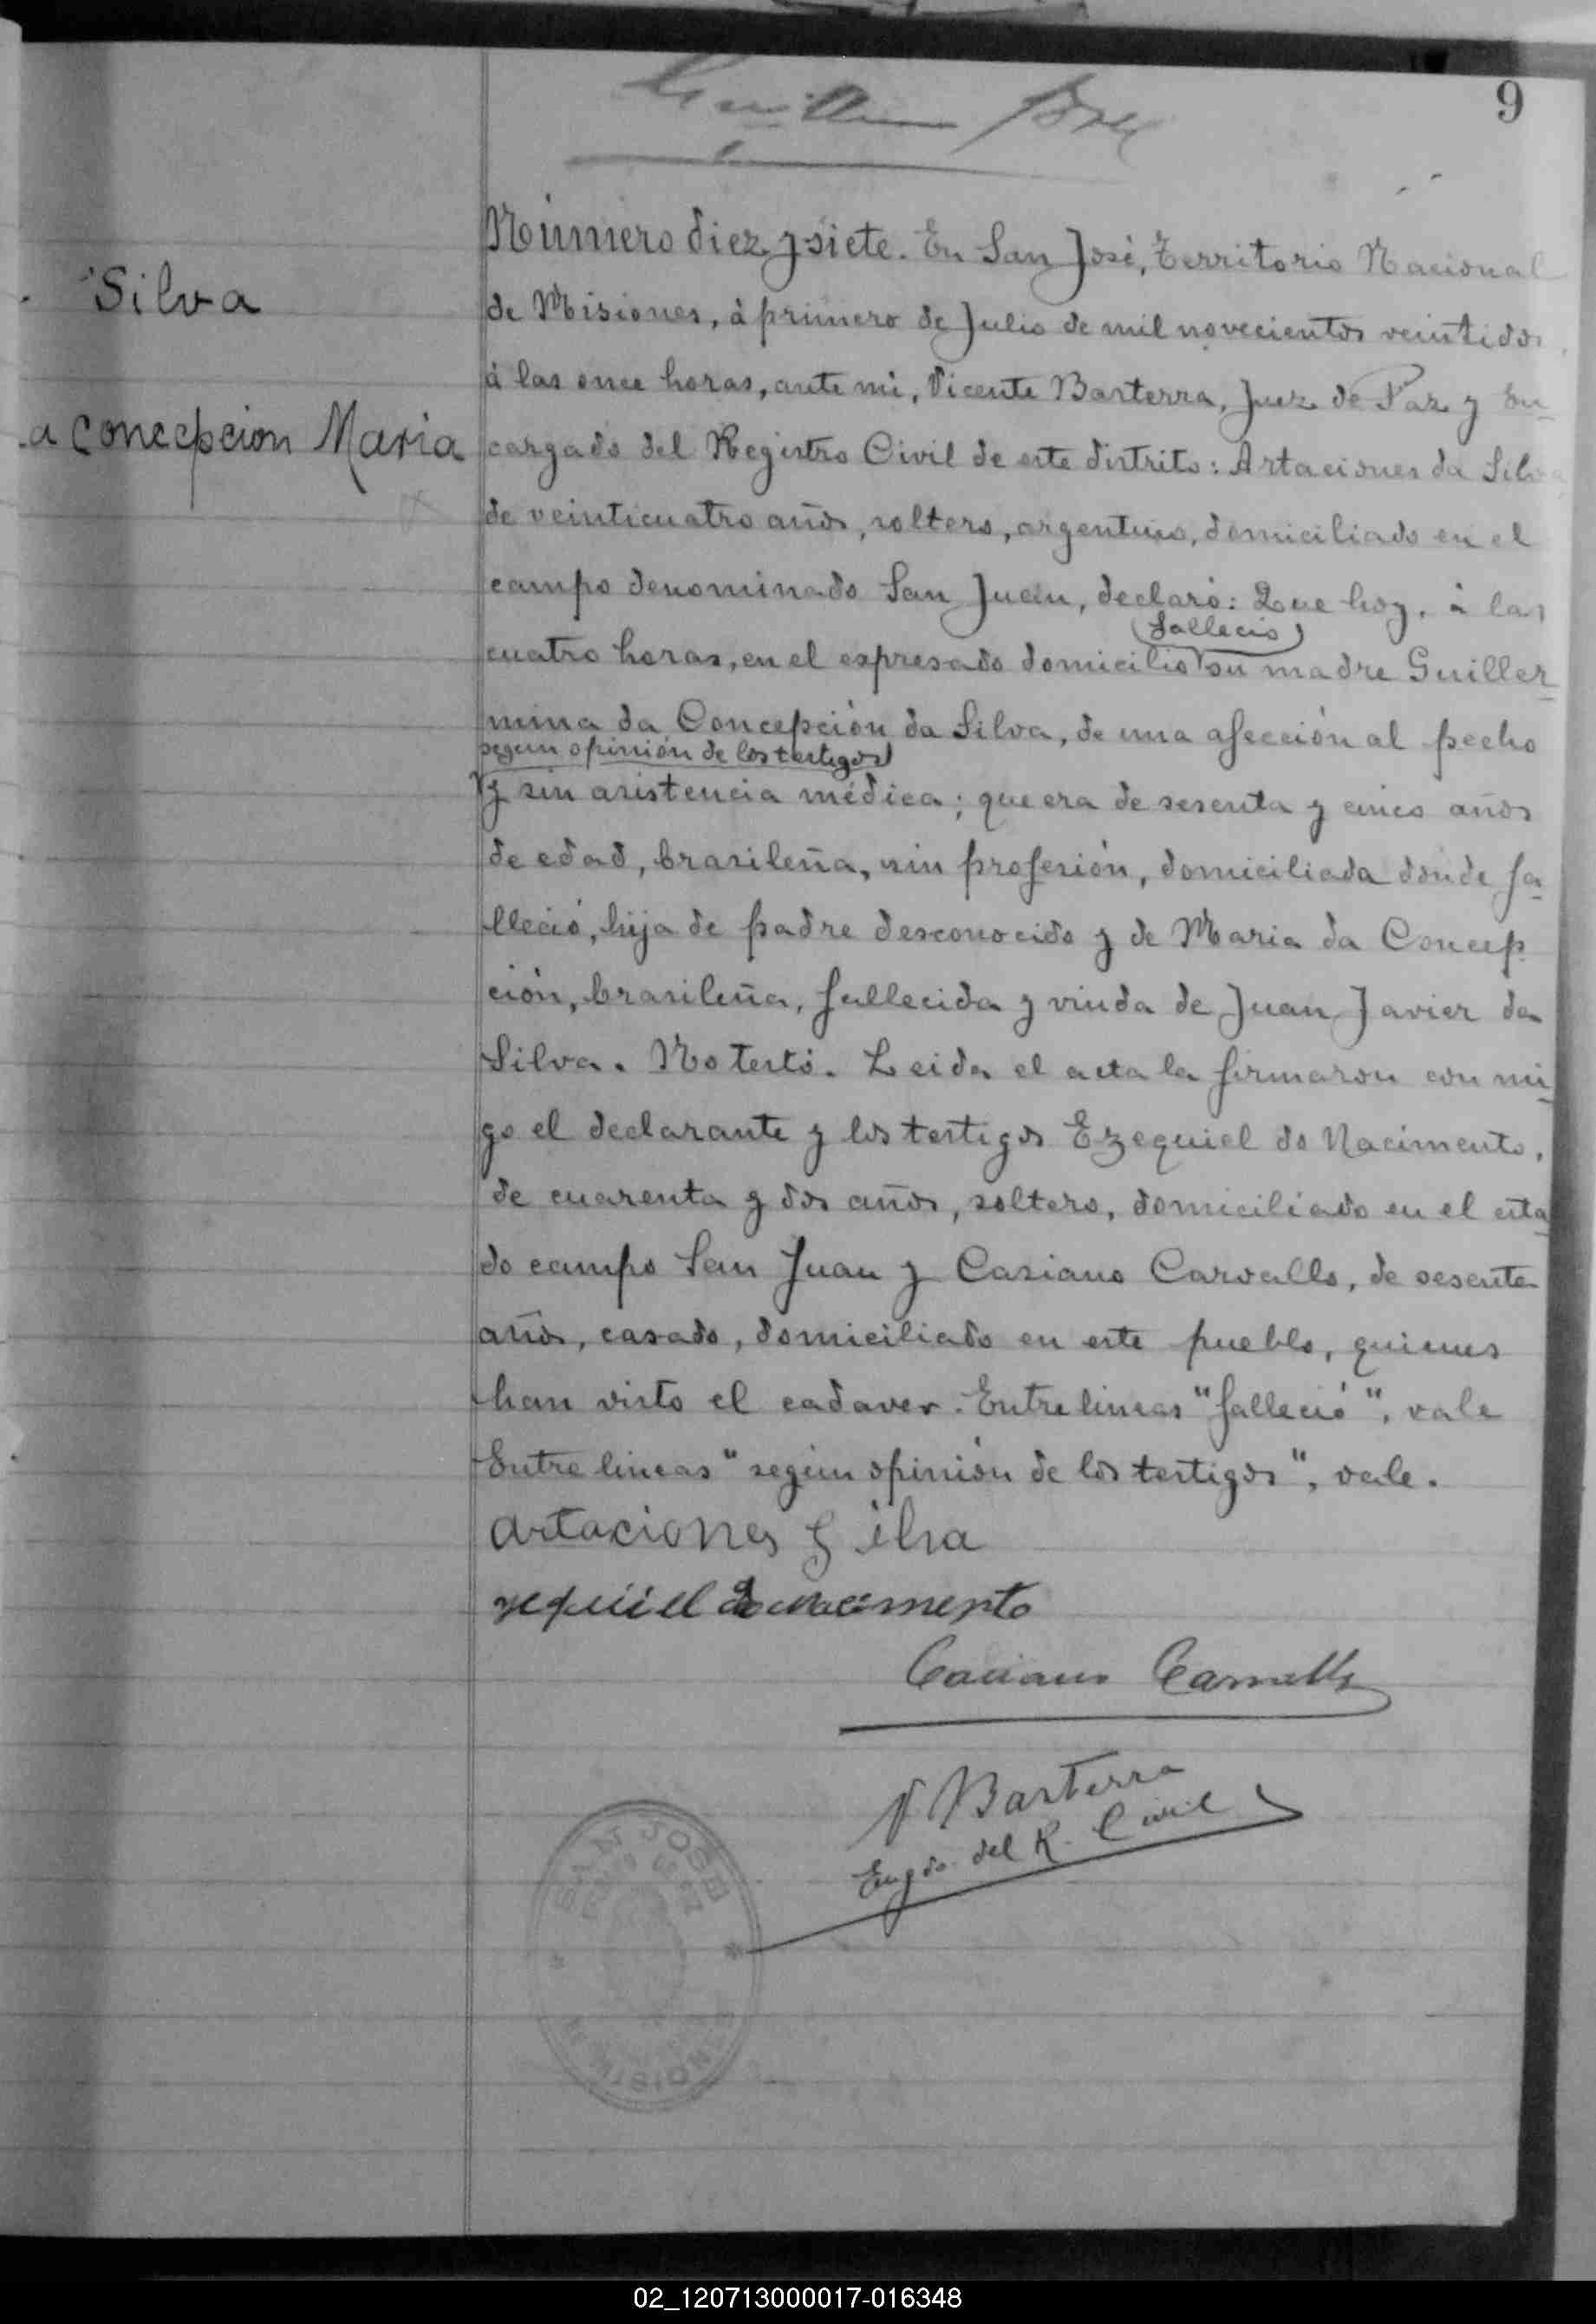 9
Silva
a Concepcion Maria
Número diez y siete. En San José, Territorio Nacional
de Misiones, à primero de Julio de mil novecientos veintidos,
à las once horas, ante mi, Vicente Barterra, Juez de Paz y En-
cargado del Registro Civil de este distrito: Artaciones da Silva
de veinticuatro años, soltero, argentino, domiciliado en el
campo denominado San Juan, declaró: Que hoy, à las
falleció
cuatro horas, en el expresado domicilio su madre Guiller-
mina da Concepción da Silva, de una afección al pecho
segun opinión de los testigos
y sin asistencia médica; que era de sesenta y cinco años
de edad, brasileña, sin profesión, domiciliada donde fa-
lleció, hija de padre desconocido y de Maria da Concep-
ción, brasileña, fallecida y viuda de Juan Javier da
Silva. No testó. Leida el acta la firmaron con mi-
go el declarante y los testigos Ezequiel do Nacimento,
de cuarenta y dos años, soltero, domiciliado en el cita-
do campo San Juan y Casiano Carvallo, de sesenta
años, casado, domiciliado en este pueblo, quienes
han visto el cadaver. Entre lineas "falleció", vale
Entre lineas "según opinión de los testigos", vale.
Artaciones Silva
zequiel do nacimento
Casiano Carvallo
V Barterra
Engdo. del R. Civil
SAN JOSE
MISIONES
02_120713000017-016348